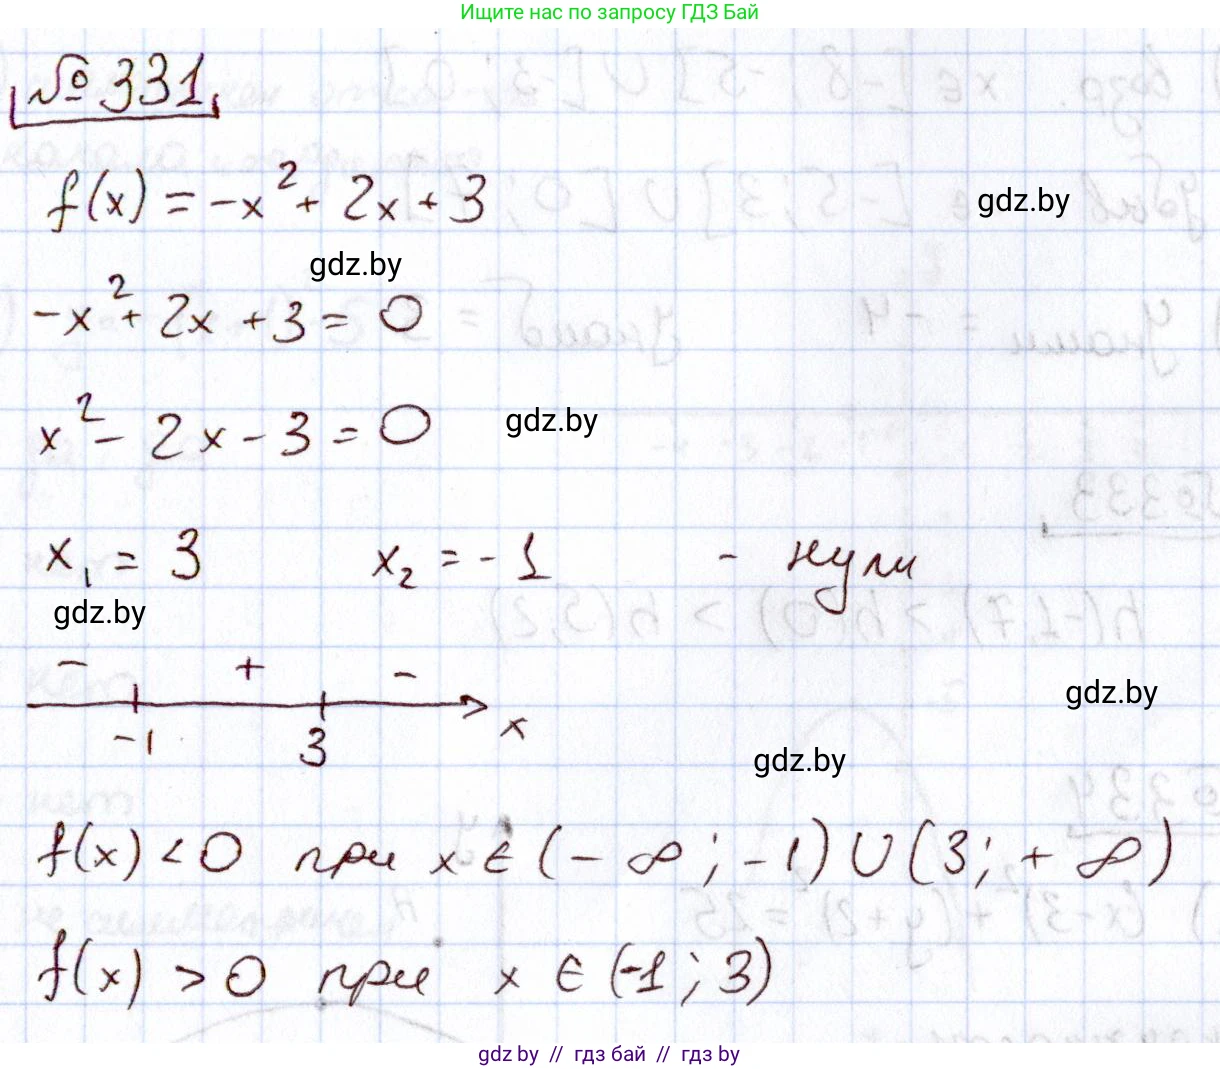 Ищите нас по запросу ГДЗ Бай
№331
f(x) = -x² + 2x + 3
gdz.by
gdz.by
-x² + 2x + 3 = 0
x² - 2x - 3 = 0
gdz.by
x₁ = 3 x₂ = -1 - нули
gdz.by
- + -
-1 3 x
gdz.by
gdz.by
f(x) < 0 при x ∈ (-∞; -1) ∪ (3; +∞)
f(x) > 0 при x ∈ (-1; 3)
gdz.by // гдз бай // гдз by